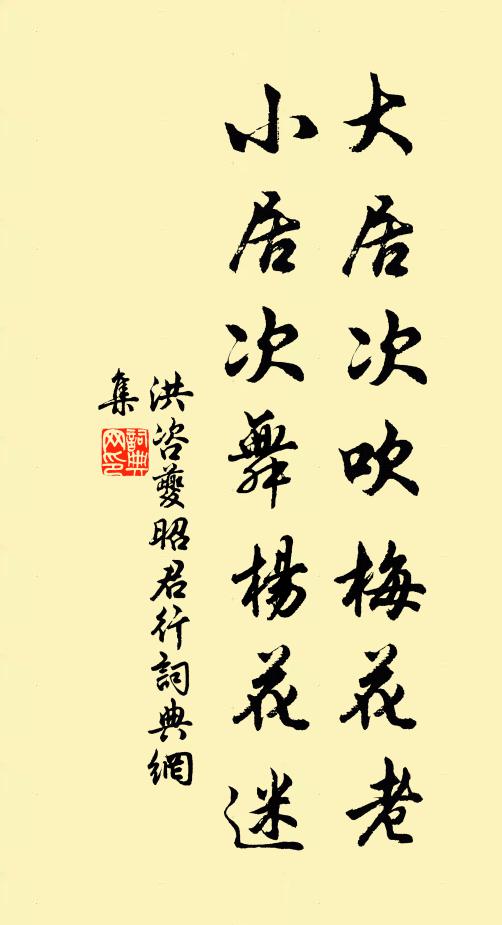 大居次吹梅花老
小居次舞楊花迷
洪咨夔昭君行詞典網
集
詞典網印